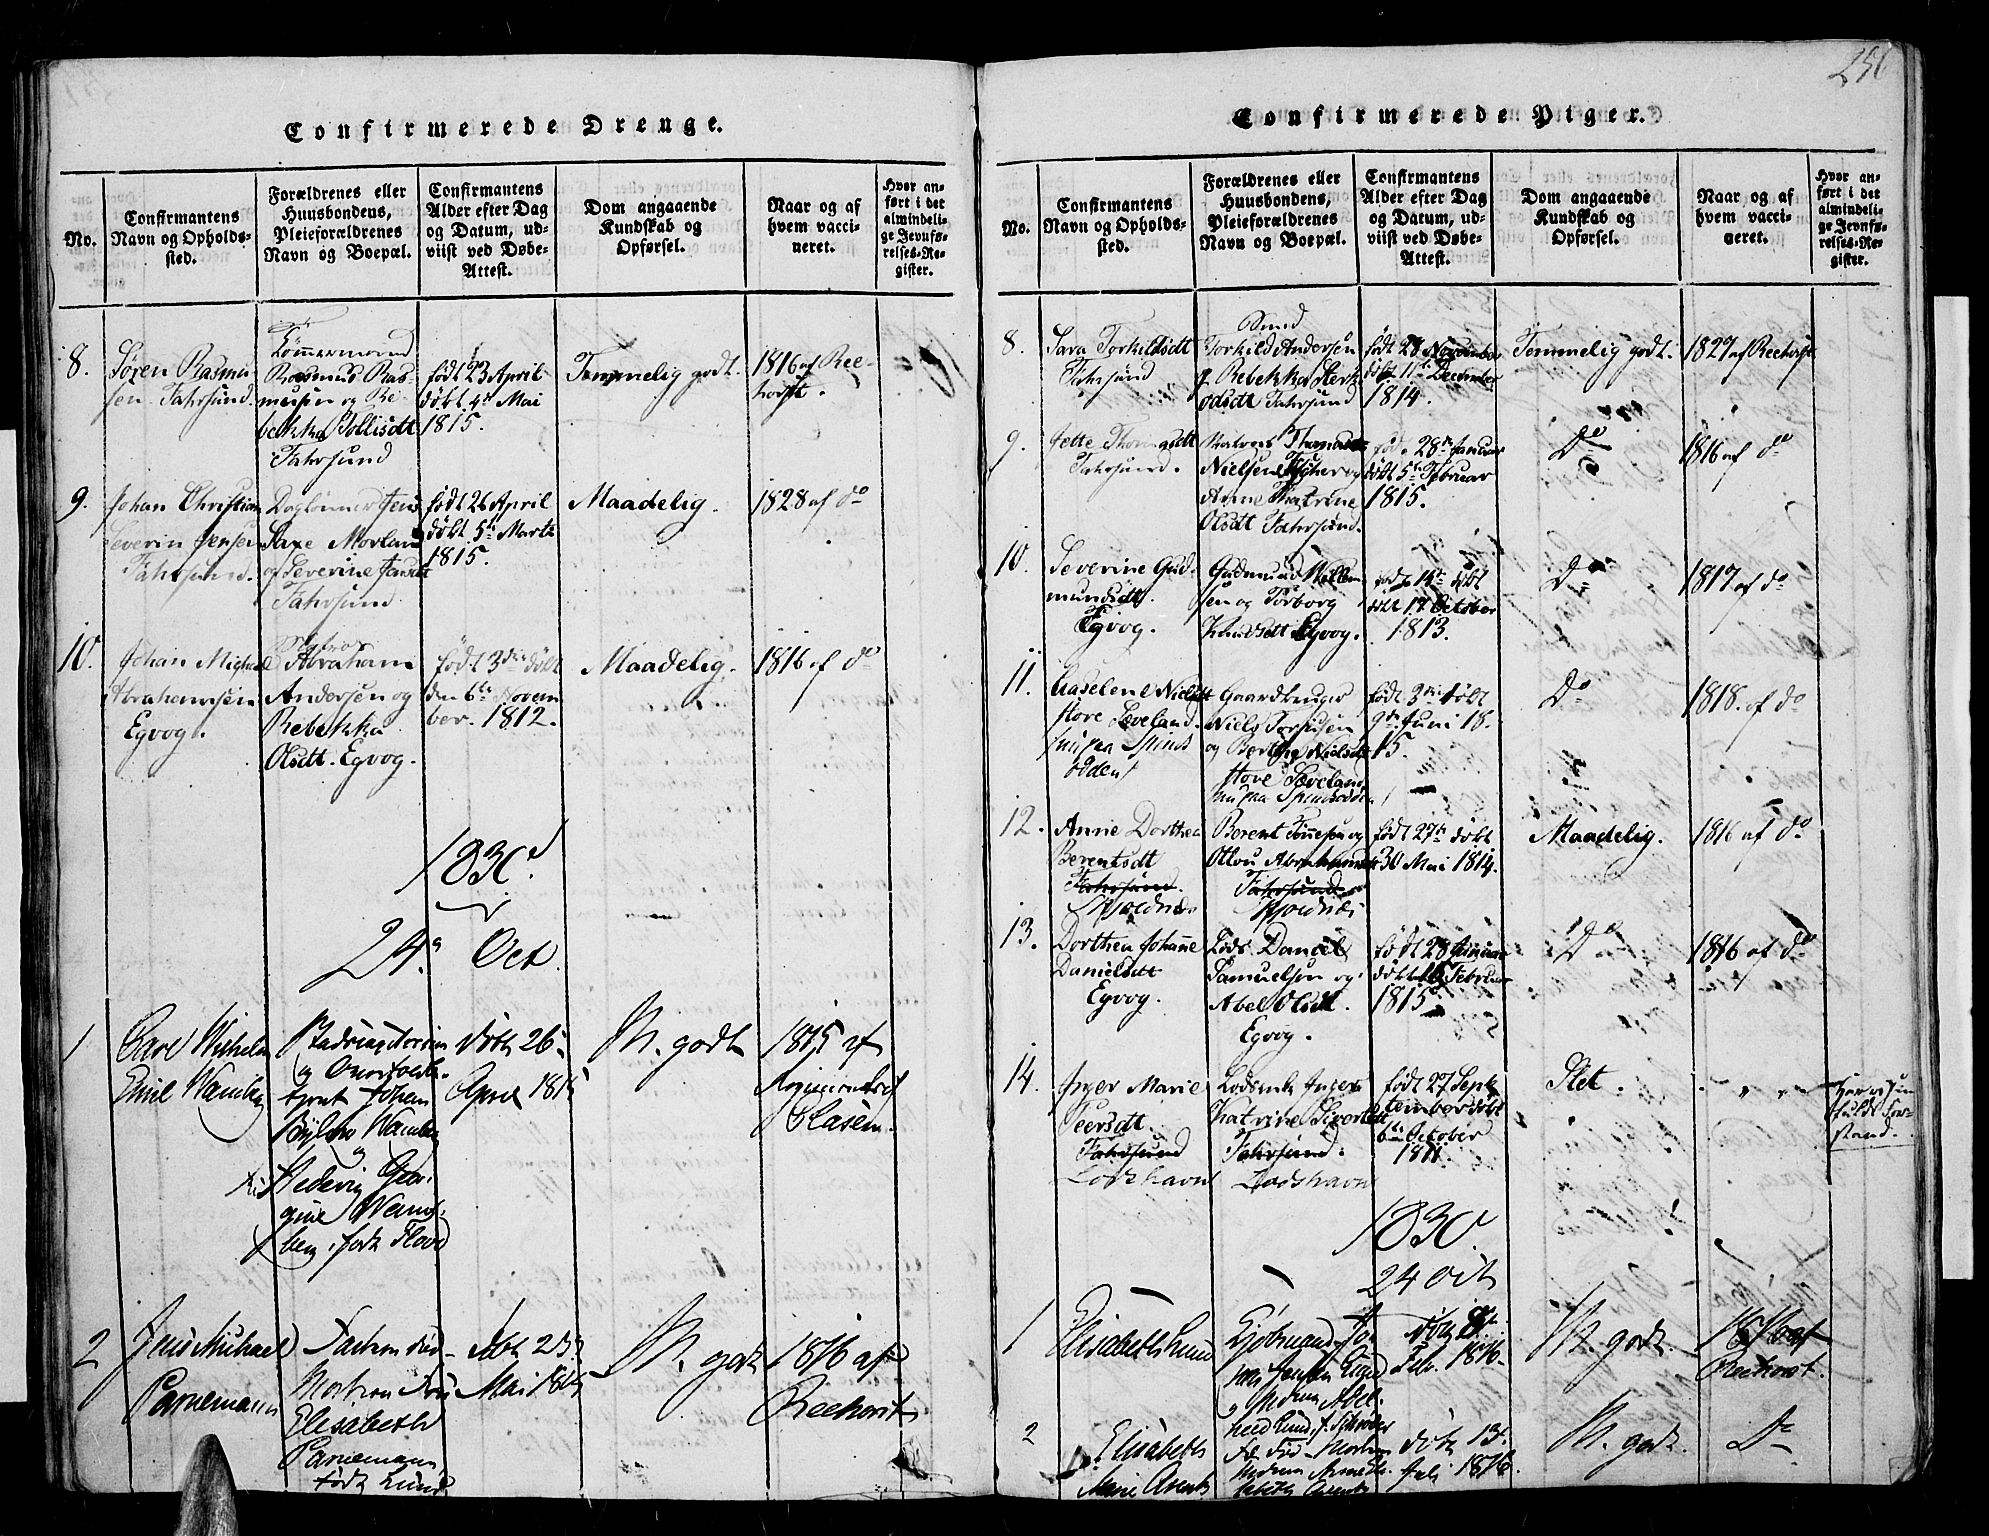 256
Confirmerede Drenge.
No.
Confirmantens
Navn og Opholds-
sted.
Forældrenes eller
Huusbondens,
Pleieforældrenes
Navn og Boepæl.
Confirmantens
Alder efter Dag
og Datum, ud-
viist ved Døbe-
Attest.
Dom angaaende
Kundskab og
Opførsel.
Naar og af
hvem vacci-
neret.
Hvor an-
ført i det
almindeli-
ge Jevnfø-
relses-Re-
gister.
8.
Søren Rasmu-
sen Fahrsund.
Tømmermand
Rasmus Ras-
musen og Re-
bekka Bollisdt
Fahrsund
født 23 April
døbt 4de Mai
1815.
Temmelig godt.
1816 af Ree-
horst.
9.
Johan Christian
Severin Jensen
Fahrsund.
Dagleiner Jens
Saxe Morland
og Severine
Fahrsund
født 26 April
døbt 5te Marts
1815.
Maadelig.
1828 af do
10.
Johan Michael
Abrahamsen
Egvog.
Abraham
Andersen og
Rebekka
Olsdt. Egvog.
født 3die døbt
den 6te Novem
ber. 1812.
Maadelig.
1816 af do
1830
24. Oct
1
Carl Wilhelm
Emil Wamberg
og
Johan
Wamberg
og
Hedevig Geor-
gine Wam-
berg, født
Døbt 26
April 1815
M. godt
1815 af
Regimentschir
Clasen.
2
Jens Michael
Parnemann
Fadren død
Modren Fru
Elisabeth
Parnemann
født Lund
Døbt 25
Mai 1815
M. godt
1816 af
Reehorst
Confirmerede Piger.
No.
Confirmantens
Navn og Opholds-
sted.
Forældrenes eller
Huusbondens,
Pleieforældrenes
Navn og Boepæl.
Confirmantens
Alder efter Dag
og Datum, ud-
viist ved Døbe-
Attest.
Dom angaaende
Kundskab og
Opførsel.
Naar og af
hvem vacci-
neret.
Hvor an-
ført i det
almindeli-
ge Jevnfø-
relses-Re-
gister.
8.
Sara Torkildsdt
Fahrsund
Smed
Torkild Andersen
og Rebekka
Fahrsund
født 28 November
døbt 11te December
1814.
Temmelig godt.
1827 af Reehorst
9.
Jette Thomasdt
Fahrsund.
Matros Thomas
Nielsen og
Anne Katrine
Olsdt Fahrsund.
født 28de Januar
døbt 5te Februar
1815.
Do
1816 af do
10.
Severine Gud-
mundsdt.
Egvog.
Gudmund Willem
sen og Torborg
Knudsdt Egvog.
født 14de døbt
døbt 17 October
1813.
Do
1817 af do
11.
Gaselene Nielsdt
store Sæveland.
nu paa Spinds
odden
Gaardbruger
Niels Torjusen
og Berthe Nielsdt
store Sæveland,
nu paa Spindsodden
født 3die døbt
9de Juni 18-
15.
Do
1818. af do
12.
Anne Dorthea
Berentsdt
Fahrsund.
Skjoldnæs
Berent Tønnesen og
Ollou Abrahamsdt
Fahrsund
Skjoldnæs
født 27de døbt
30 Mai 1814.
Maadelig.
1816 af do
13.
Dorthea Johanne
Danielsdt
Egvog.
Lods Daniel
Samuelsen og
Abel Olsdt.
Egvog.
født 28 Januar
døbt 16 Februar
1815
Do
1816 af do
14.
Inger Marie
Peersdt.
Fahrsund
Lodshavn
Lodsenke Inger
Katrine Sivertsdt
Fahrsund.
Lodshavn
født 27 Sept
tember døbt
6te October
1811.
Slet.
" "
Har ei sin
fulde For-
stand.
1830
24 Oct
1
Elisabeth Lund
Kjøbmand
Jensen Lund
og Madm Abel
heed Lund, f. Schrøder
Døbt
Feb. 1816
M. godt.
1816 af
Reehorst.
2
Elisabeth
Marie Arentz
Modren
Madm
Arentz
døbt 13
Juli 1816.
M. godt.
Do